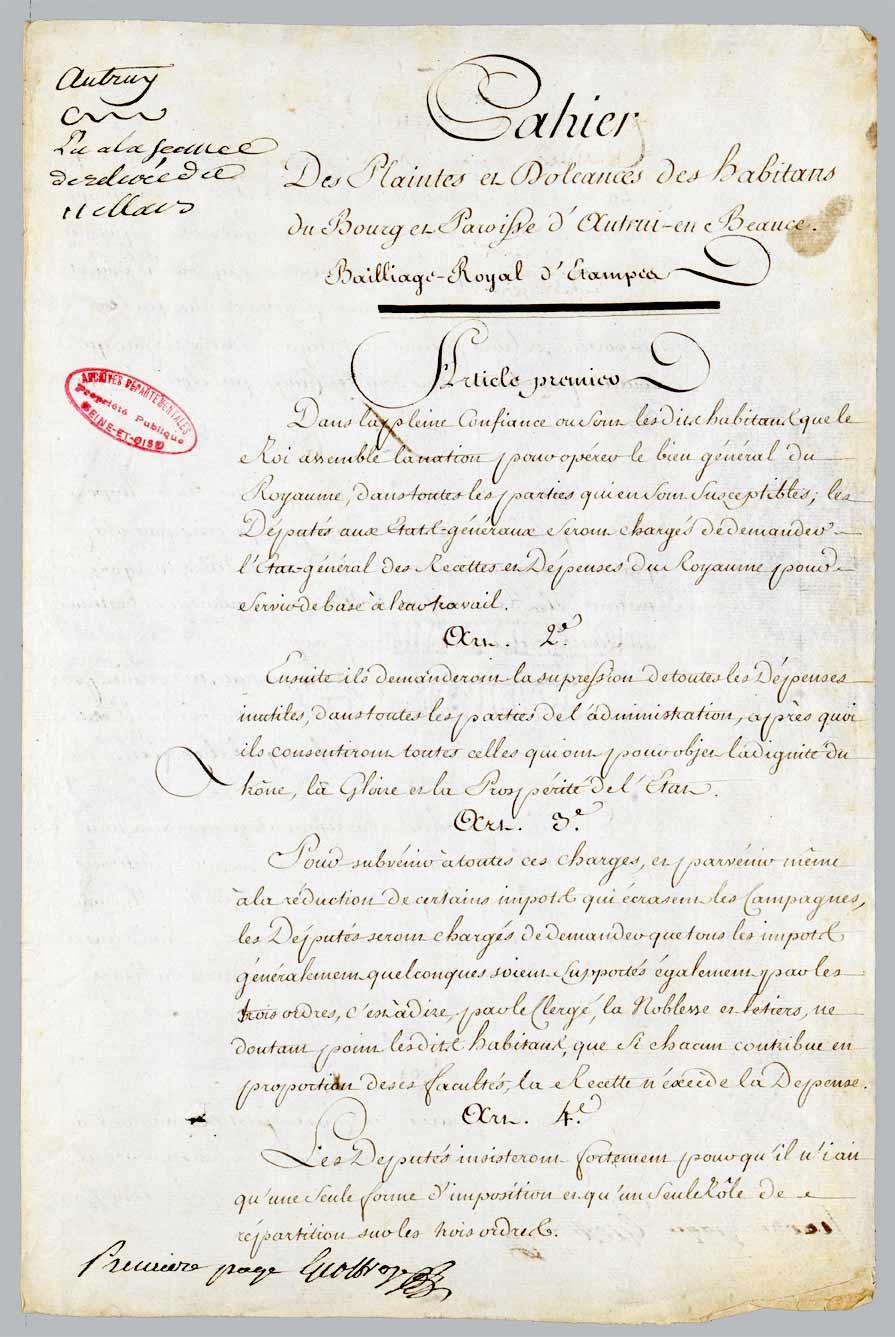 Autruy
Lu a la seance
de relevée du
11 Mars
Cahier
Des Plaintes et Doleances des habitans
du Bourg et Paroisse d'Autrui-en Beauce.
Bailliage-Royal d'Etampes
ARCHIVES DEPARTEMENTALES
Propriété Publique
SEINE-ET-OISE
Article premier
Dans la pleine Confiance ou sont lesdits habitans que le
Roi assemble la nation pour opérer le bien général du
Royaume, dans toutes les parties qui en sont susceptibles; les
Députés aux Etats-généraux seront chargés de demander
l'Etat-général des Recettes et Dépenses du Royaume pour
servir de base à leur travail.
Art. 2e.
Ensuite ils demanderont la supression de toutes les Dépenses
inutiles, dans toutes les parties de l'administration, après quoi
ils consentiront toutes celles qui ont pour objet la dignité du
trône, la Gloire et la Prospérité de l'Etat.
Art. 3e.
Pour subvenir à toutes ces charges, et parvenir même
à la réduction de certains impots qui écrasent les Campagnes,
les Députés seront chargés de demander que tous les impots
généralement quelconques soient supportés également par les
trois ordres, c'est à dire, par le Clergé, la Noblesse et le tiers, ne
doutant point lesdits habitans, que si chacun contribue en
proportion de ses facultés, la Recette n'éxcède la Depense.
Art. 4e.
Les Députés insisteront fortement pour qu'il n'i ait
qu'une seule forme d'imposition et qu'un seul Rôle de
répartition sur les trois ordres.
Premiere page